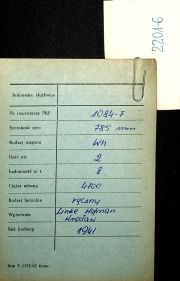 2201-6
Jednostka służbowa
Nr inwentarza PKP 1084-7
Szerokość toru 785 mm
Rodzaj wagonu Wh
Ilość osi 2
Ładowność w t. 8
Ciężar własny 4700
Rodzaj hamulca ręczny
Wytwórnia Linke Hofman
Wrocław
Rok budowy 1941